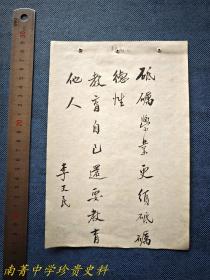 砥礪學業更須砥礪
德性
教育自己還要教育
他人
李天民
南菁中学珍贵史料